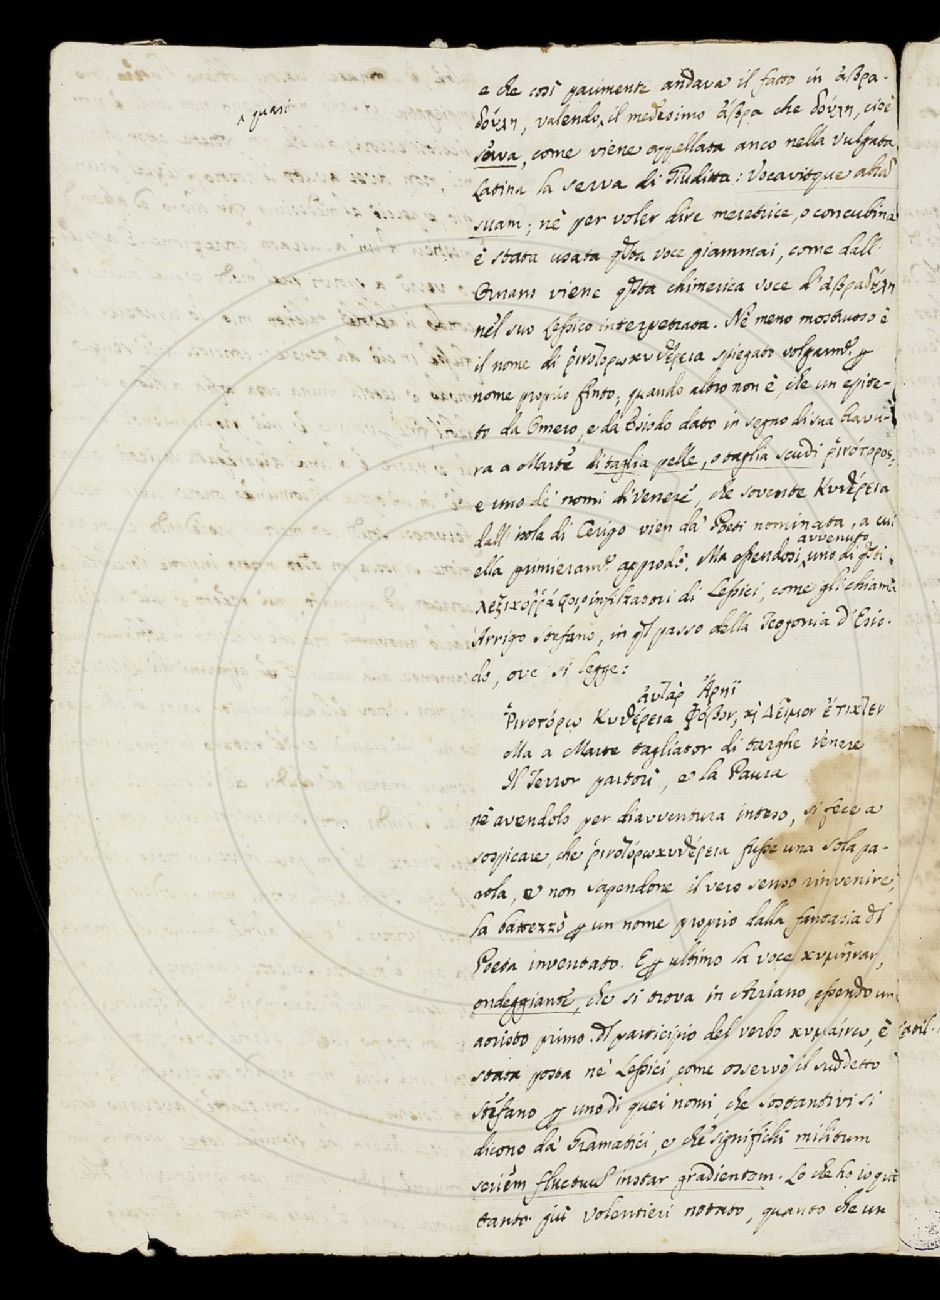 ^ quasi
e che così parimente andava il fatto in ἁβρα-
δούλη, valendo^ il medesimo ἅβρα che δούλη, cioè
serva, come viene appellata anco nella Vulgata
Latina la serva di Giuditta: Vocavitque abrã
suam; nè per voler dire meretrice, o concubina
è stata usata q̃sta voce giammai, come dall'
viene q̃sta chimerica voce d'ἁβραδούλη
nel suo Lessico interpretata. Nè meno mostruoso è
il nome di ῥινοτορωκυθέρεια spiegato volgarm.e
nome proprio finto, quando altro non è, che un epite-
to da Omero, e da Esiodo dato in segno di sua bravu-
ra a Marte di taglia pelle, o taglia scudi ῥινότορος,
e uno de' nomi di Venere, che sovente Κυθέρεια
dall'isola di Cerigo vien da' Poeti nominata, a cui
ella primieram.e approdò. Ma essendosi^ uno di q̃sti
avvenuto
λεξικογράφοι, o infilzatori di Lessici, come gli chiama
Arrigo Stefano, in q̃l passo della Teogonia d'Esio-
do, ove si legge:
Αὐτὰρ Ἄρηϊ
Ῥινοτόρῳ Κυθέρεια Φόβον, κ̀ Δεῖμον ἔτικτεν
Ma a Marte tagliator di targhe Venere
Il Terror partorì, e la Paura
nè avendolo per diavventura inteso, si fece a
sospicare, che ῥινοτόρωκυθέρεια fusse una sola pa-
rola, e non sapendone il vero senso rinvenire,
la battezzò un nome proprio dalla fantasia dl
Poeta inventato. E ultimo la voce κυμῆναν,
ondeggiante, che si trova in Arriano, essendo un
aoristo primo dl participio del verbo κυμαίνω, è
stata posta ne' Lessici, come osservò il suddetto
Stefano uno di quei nomi, che sostantivi si
dicono da' Gramatici, e che significhi militum
seriem fluctuũ instar gradientem. Lo che ho io quì
tanto più volentieri notato, quanto che un